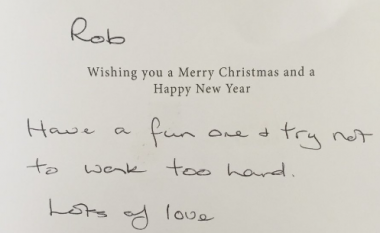 Rob
Wishing you a Merry Christmas and a
Happy New Year
Have a fun one & try not
to work too hard.
Lots of love